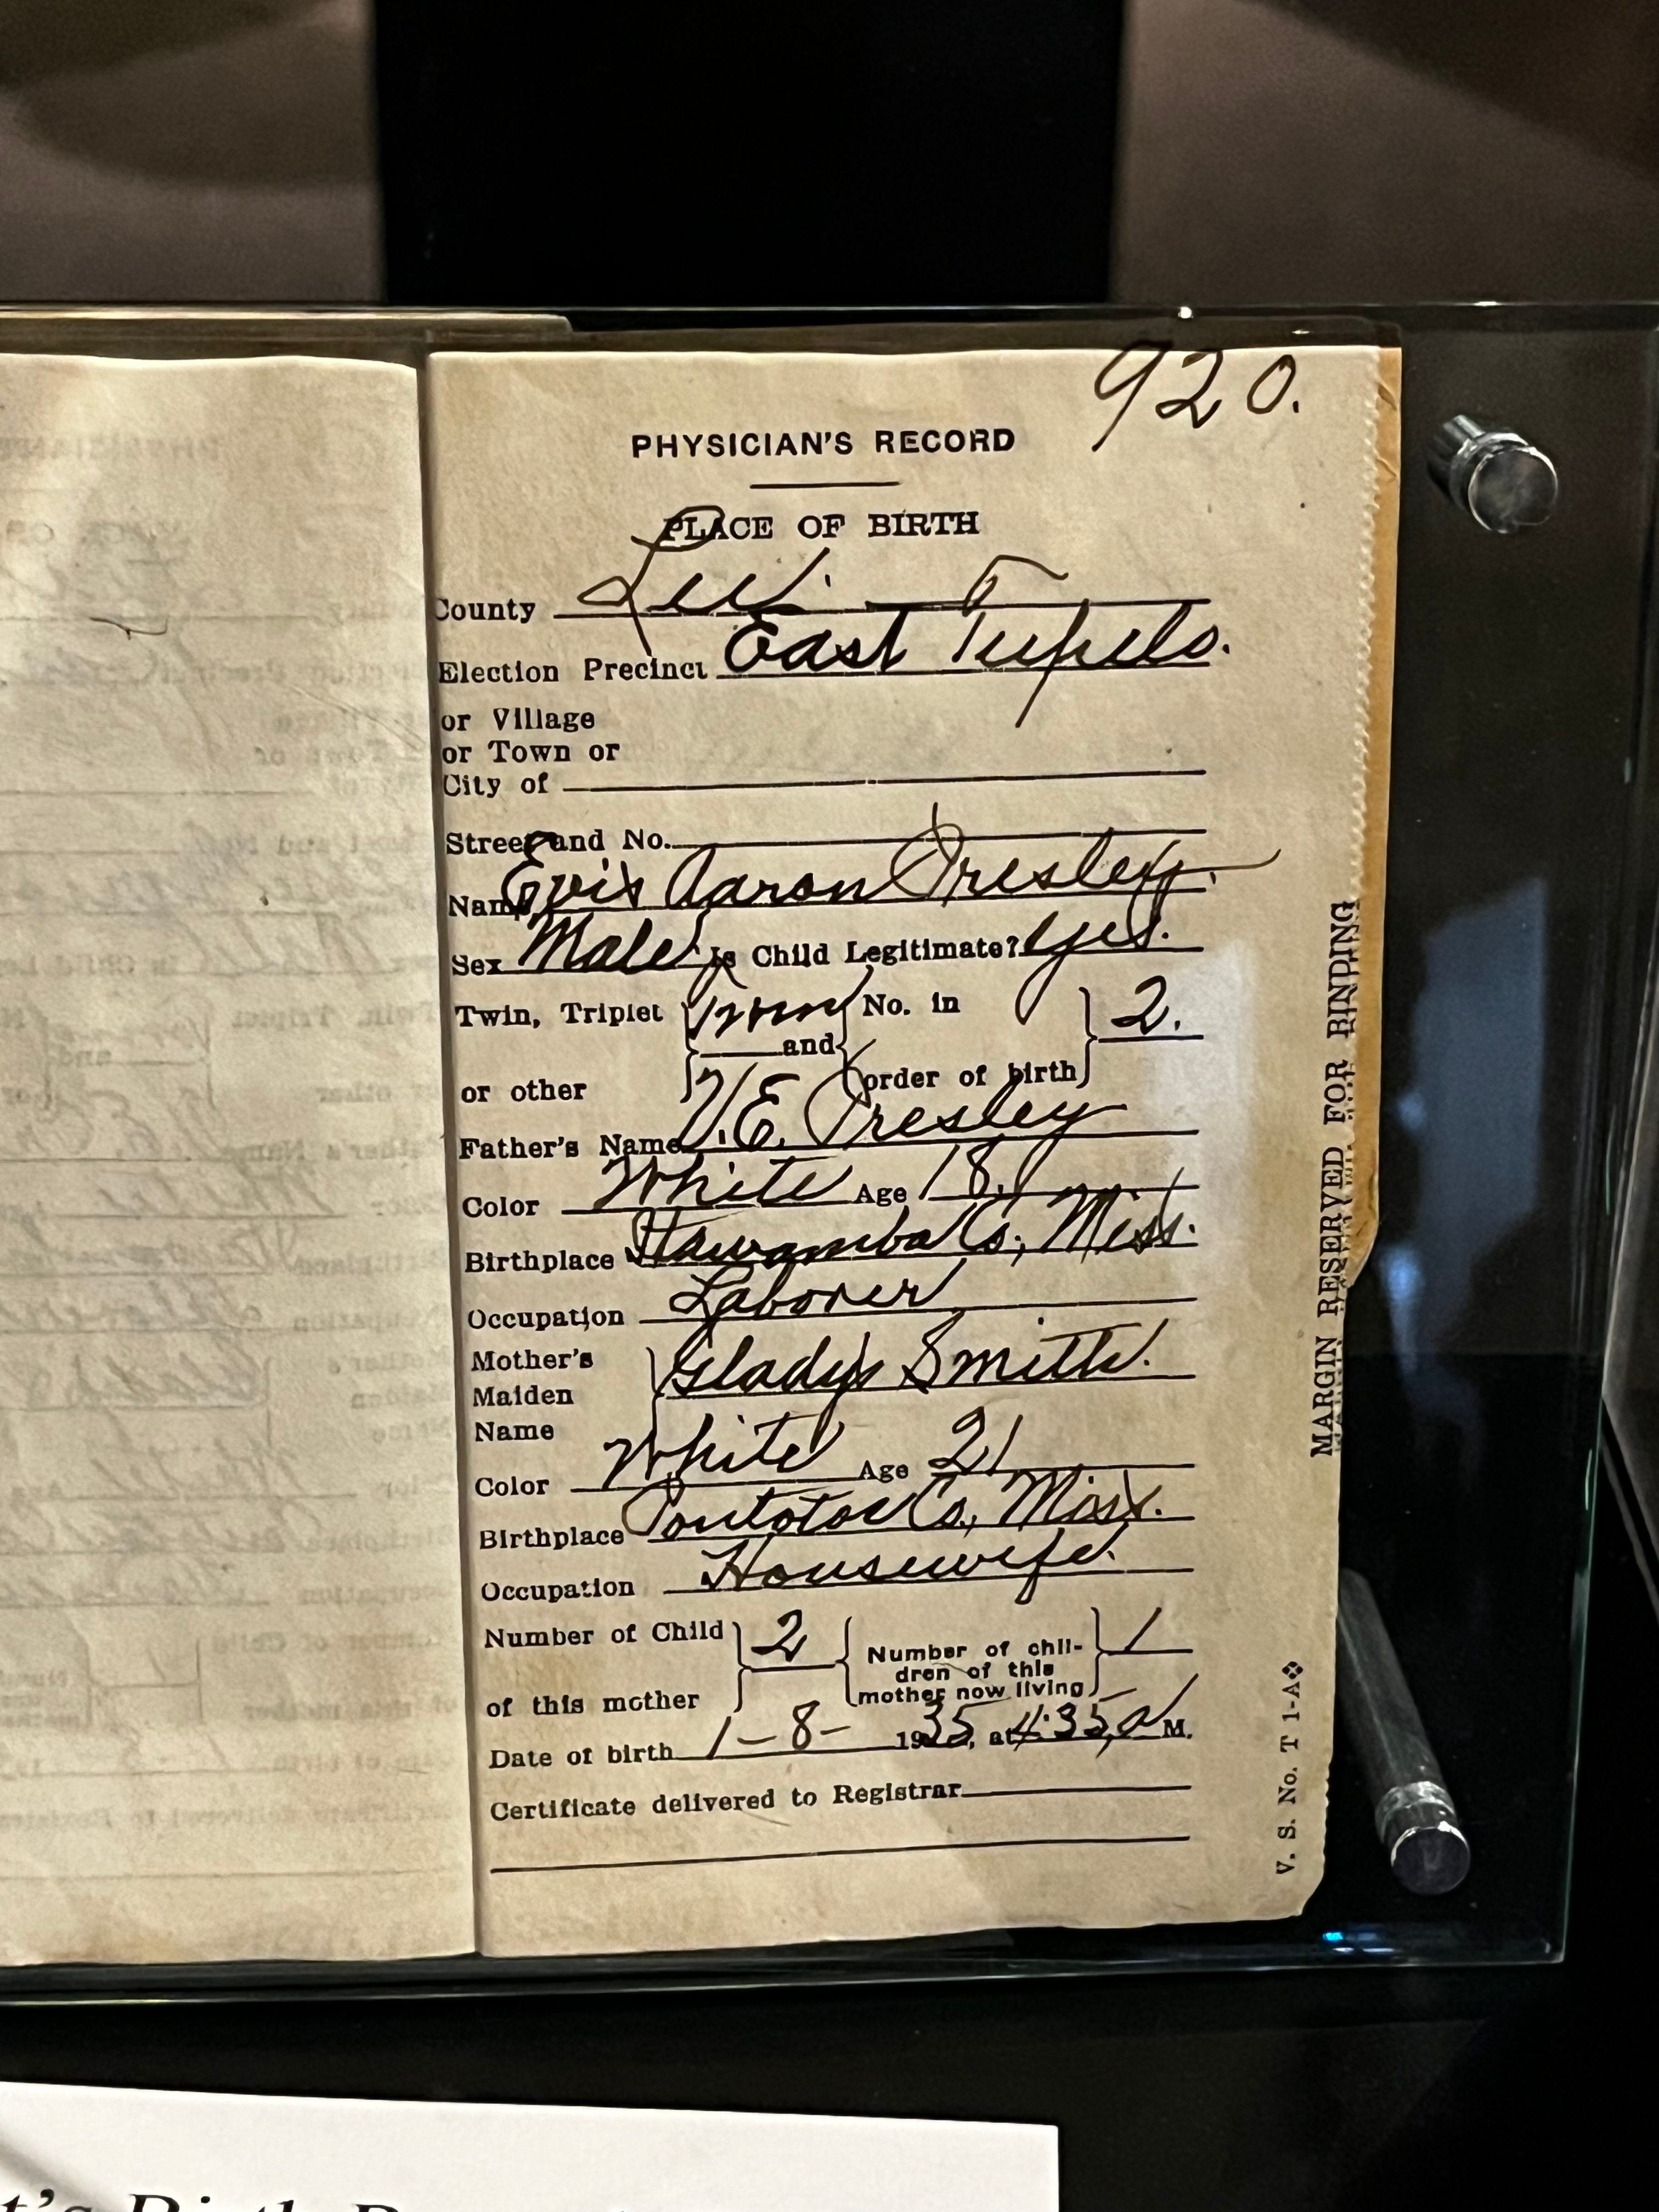 920.
PHYSICIAN'S RECORD
PLACE OF BIRTH
County Lee.
Election Precinct East Tupelo.
or Village
or Town or
City of
Street and No.
Name Evis Aaron Presley.
Sex Male Is Child Legitimate? Yes.
Twin, Triplet Twin No. in 2.
and
or other order of birth
Father's Name V.E. Presley
Color White Age 18.
Birthplace Itawamba Co., Miss.
Occupation Laborer
Mother's
Maiden Gladys Smith.
Name
Color White Age 21
Birthplace Pontotoc Co., Miss.
Occupation Housewife.
Number of Child 2 Number of chil- 1
dren of this
of this mother mother now living
Date of birth 1-8- 1935, at 4:35, a M.
Certificate delivered to Registrar
MARGIN RESERVED FOR BINDING
V. S. No. T 1-A